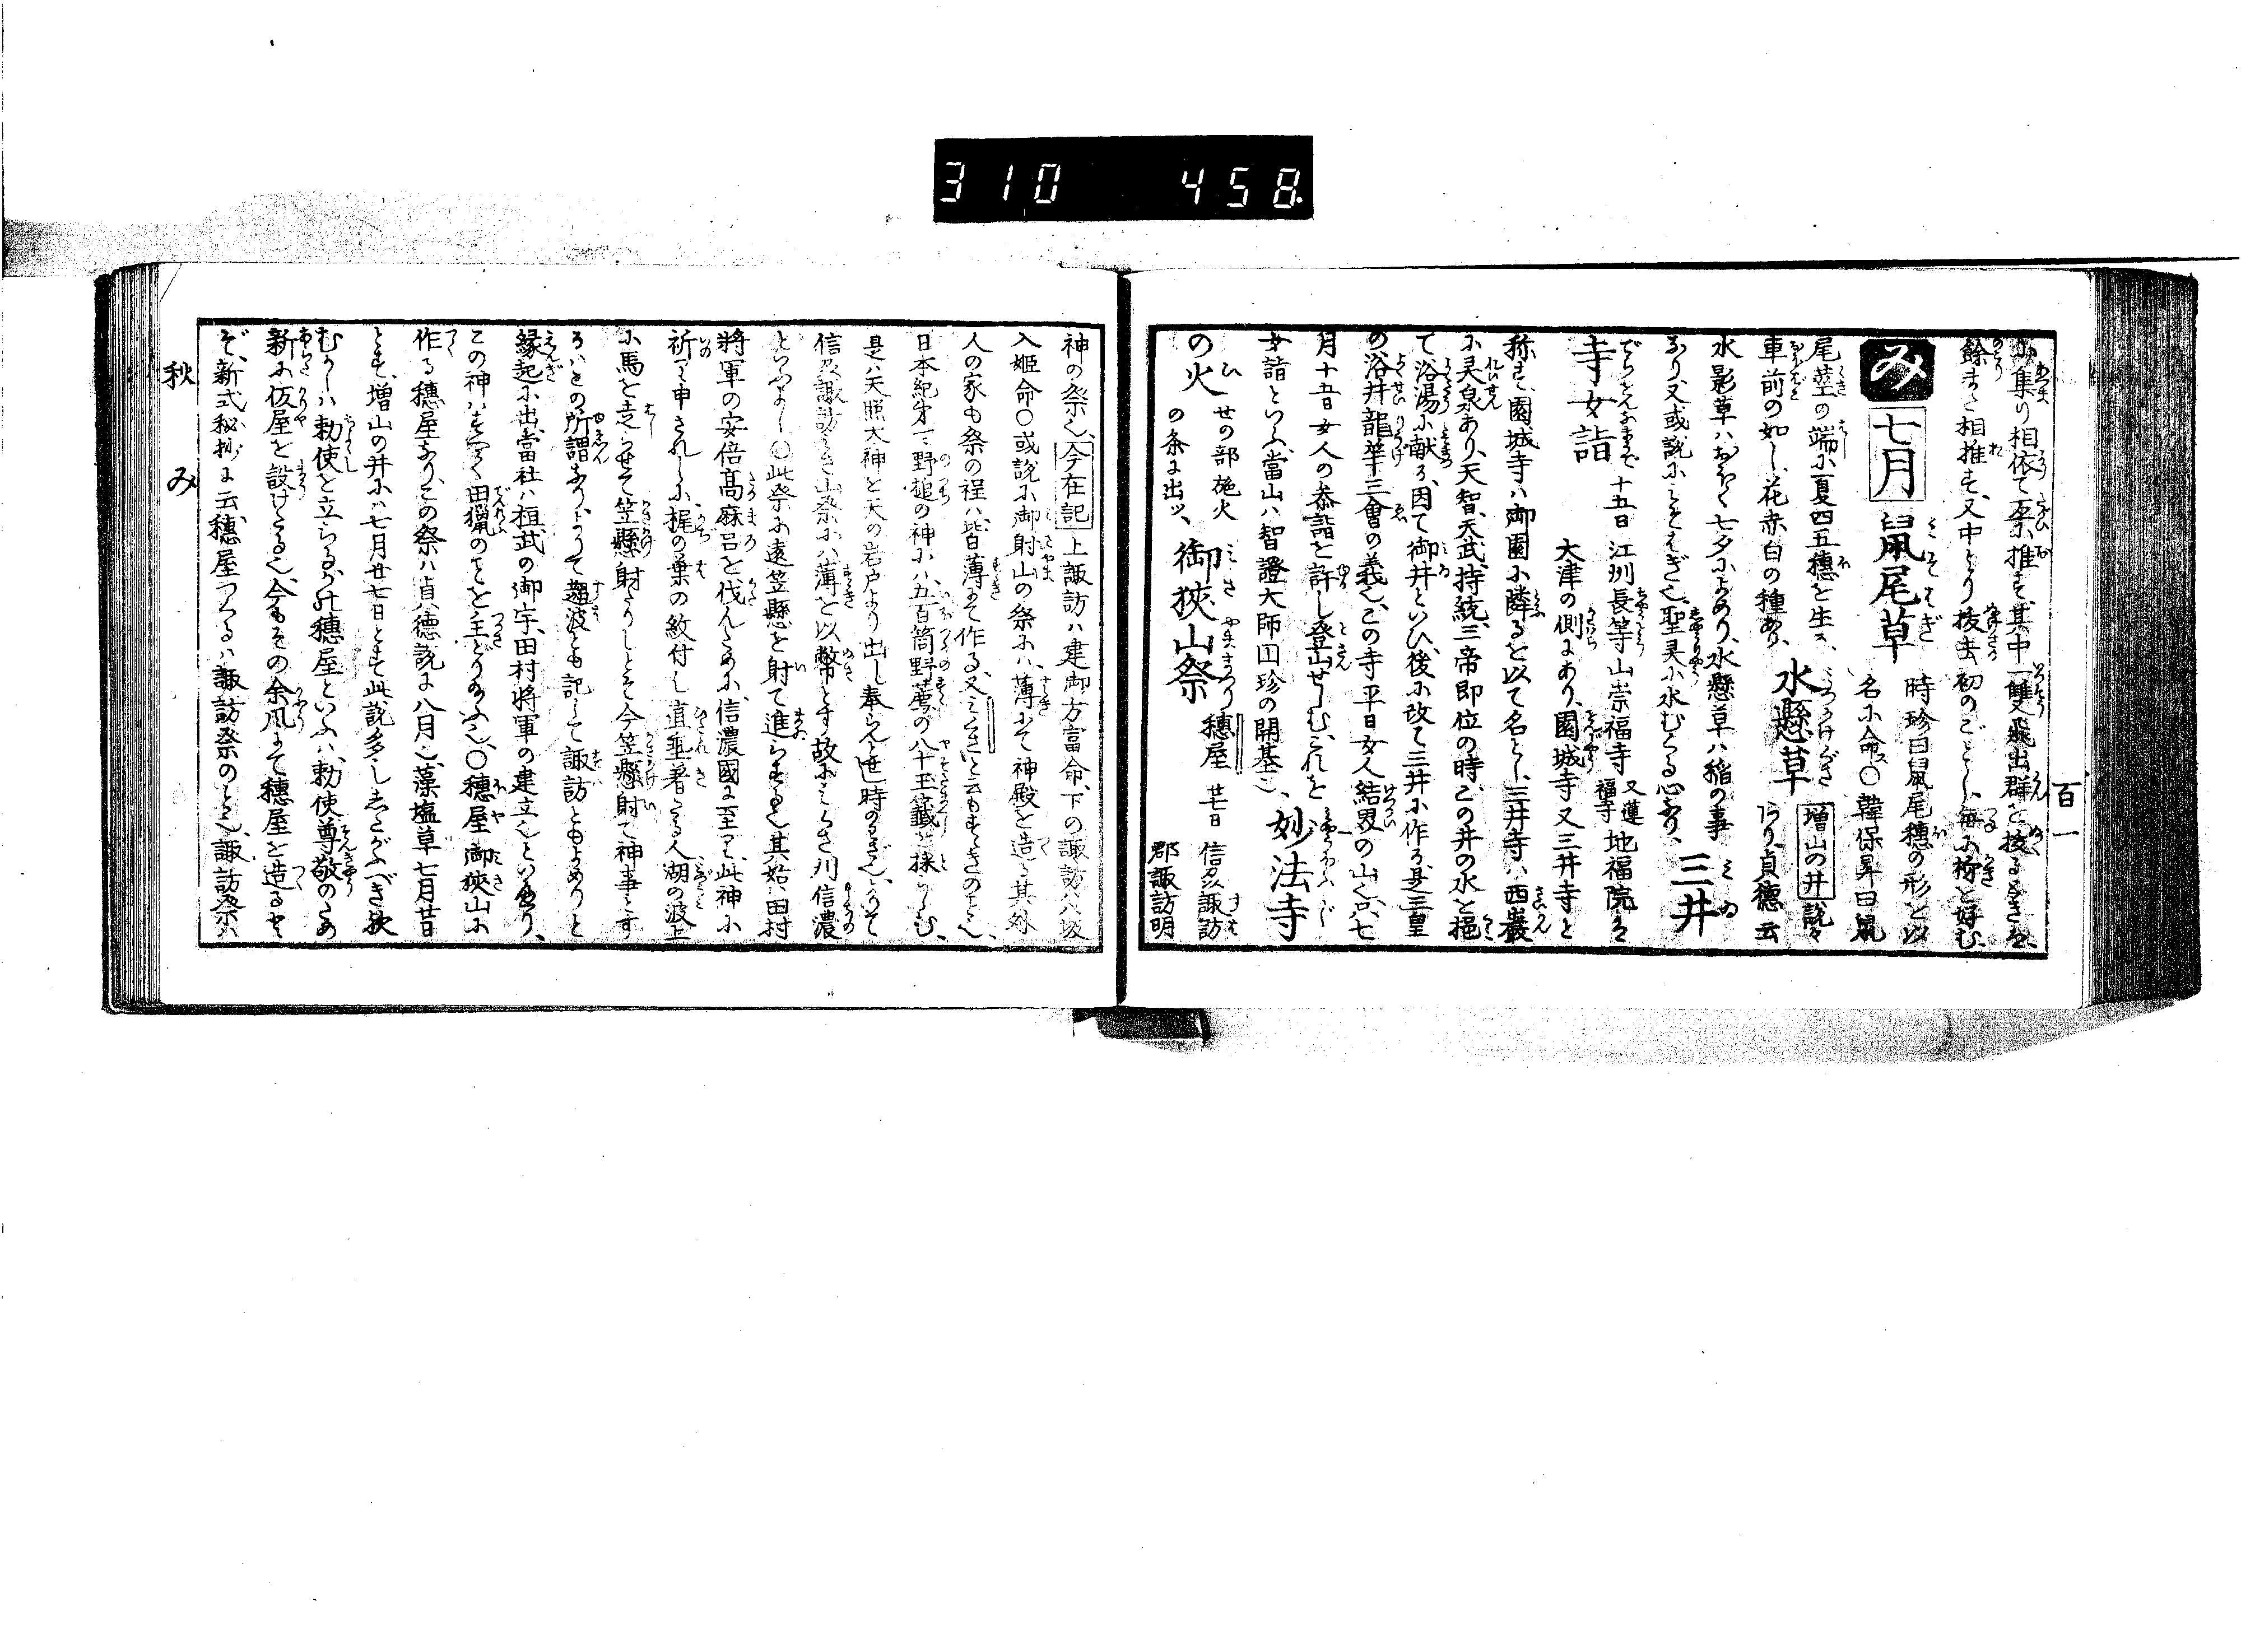 310 458
百一
に集り相依て互に推す其中一雙飛出群を抜るときは、
餘また相推す、又中より抜去初のごとし、毎に狩を好む、
み 七月 鼠尾草 時珍曰鼠尾穗の形を以
名に命ス○韓保昇曰鼠
尾莖の端に夏四五穗を生ス、
車前の如し、花赤白の種あり、 水懸草 増山の井説々
あり、貞徳云
水影草ハおほく七夕によめり、水懸草ハ稲の事
なり、又或説にみそはぎ也、聖灵に水むくる心なり、 三井
寺女詣 十五日 江州長等山崇福寺 又蓮福寺 地福院は
大津の側にあり、園城寺又三井寺と
称す、園城寺ハ御園に隣るを以て名とし、三井寺ハ西巌
に灵泉あり、天智、天武、持統、三帝即位の時、この井の水を挹
て浴湯に献る、因て御井といひ、後に改て三井に作る、是三皇
の浴井龍華三會の義也、この寺平日女人結界の山也、只七
月十五日女人の恭詣を許し登山せしむ、これを
女詣といふ、當山ハ智證大師円珍の開基也、 妙法寺
の火 せの部施火
の条に出ッ、 御狹山祭 穗屋 廿七日 信及諏訪
郡諏訪明
神の祭也、今在記 上諏訪ハ建御方富命、下の諏訪ハ坂
入姫命○或説に御射山の祭にハ、薄にて神殿を造る其外
人の家も祭の程ハ、皆薄にて作る、又みくさと云もすゝきのこと也、
日本紀才一ニ野槌の神にハ五百箇野薦の八十玉籤を採らしむ、
是ハ天照大神を天の岩戸より出し奉らんと也時のわざ也、
信及諏訪みさ山祭にハ薄を以幣とす故にみくさ刈信濃
といふよし○此祭に遠笠懸を射て進らする也、其始ハ田村
將軍の安倍髙麻呂を伐んために、信濃國に至る、此神に
祈り申されしに、握の葉の紋付し直垂着たる人湖の波上
に馬を走らせて笠懸射たりしとて今笠懸射て神事とす
るハとの所謂なり、よつて趨波とも記して諏訪ともよめりと
縁起に出、當社ハ桓武の御宇、田村將軍の建立也といへり、
この神ハすべて田獵のことを主どり給ふ也、○穗屋御狹山に
作る穗屋なり、この祭ハ貞徳説に八月也、藻塩草七月廿日
とす、増山の井にハ七月廿七日とす此説多ししたがふべき歟
むかしハ勅使を立らるゝが此穗屋といふハ勅使尊敬のため
新に仮屋を設けたる也、今もその余風にて穗屋を造るとぞ
ぞ、新式秘抄に云、穗屋つくるハ諏訪祭のこと也、諏訪祭ハ
秋 み